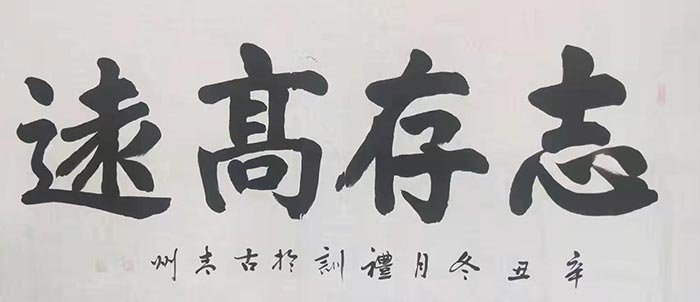 志存高遠
辛丑冬月禮訓於古青州